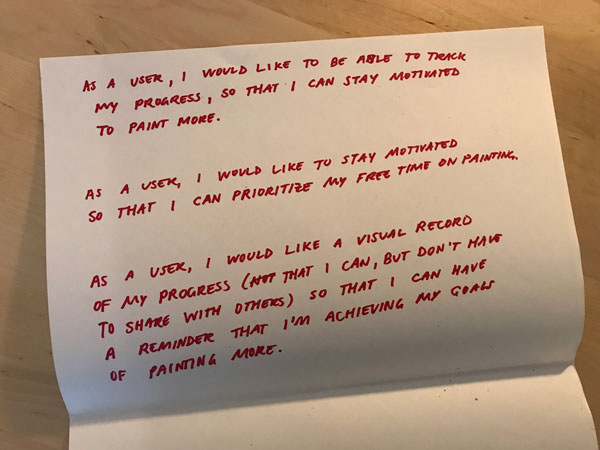 AS A USER, I WOULD LIKE TO BE ABLE TO TRACK
MY PROGRESS, SO THAT I CAN STAY MOTIVATED
TO PAINT MORE.
AS A USER, I WOULD LIKE TO STAY MOTIVATED
SO THAT I CAN PRIORITIZE MY FREE TIME ON PAINTING.
AS A USER, I WOULD LIKE A VISUAL RECORD
OF MY PROGRESS (THAT I CAN, BUT DON'T HAVE
TO SHARE WITH OTHERS) SO THAT I CAN HAVE
A REMINDER THAT I'M ACHIEVING MY GOALS
OF PAINTING MORE.